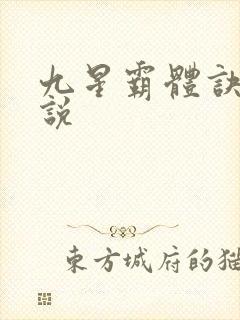 九星霸體訣
說
東方城府的猫